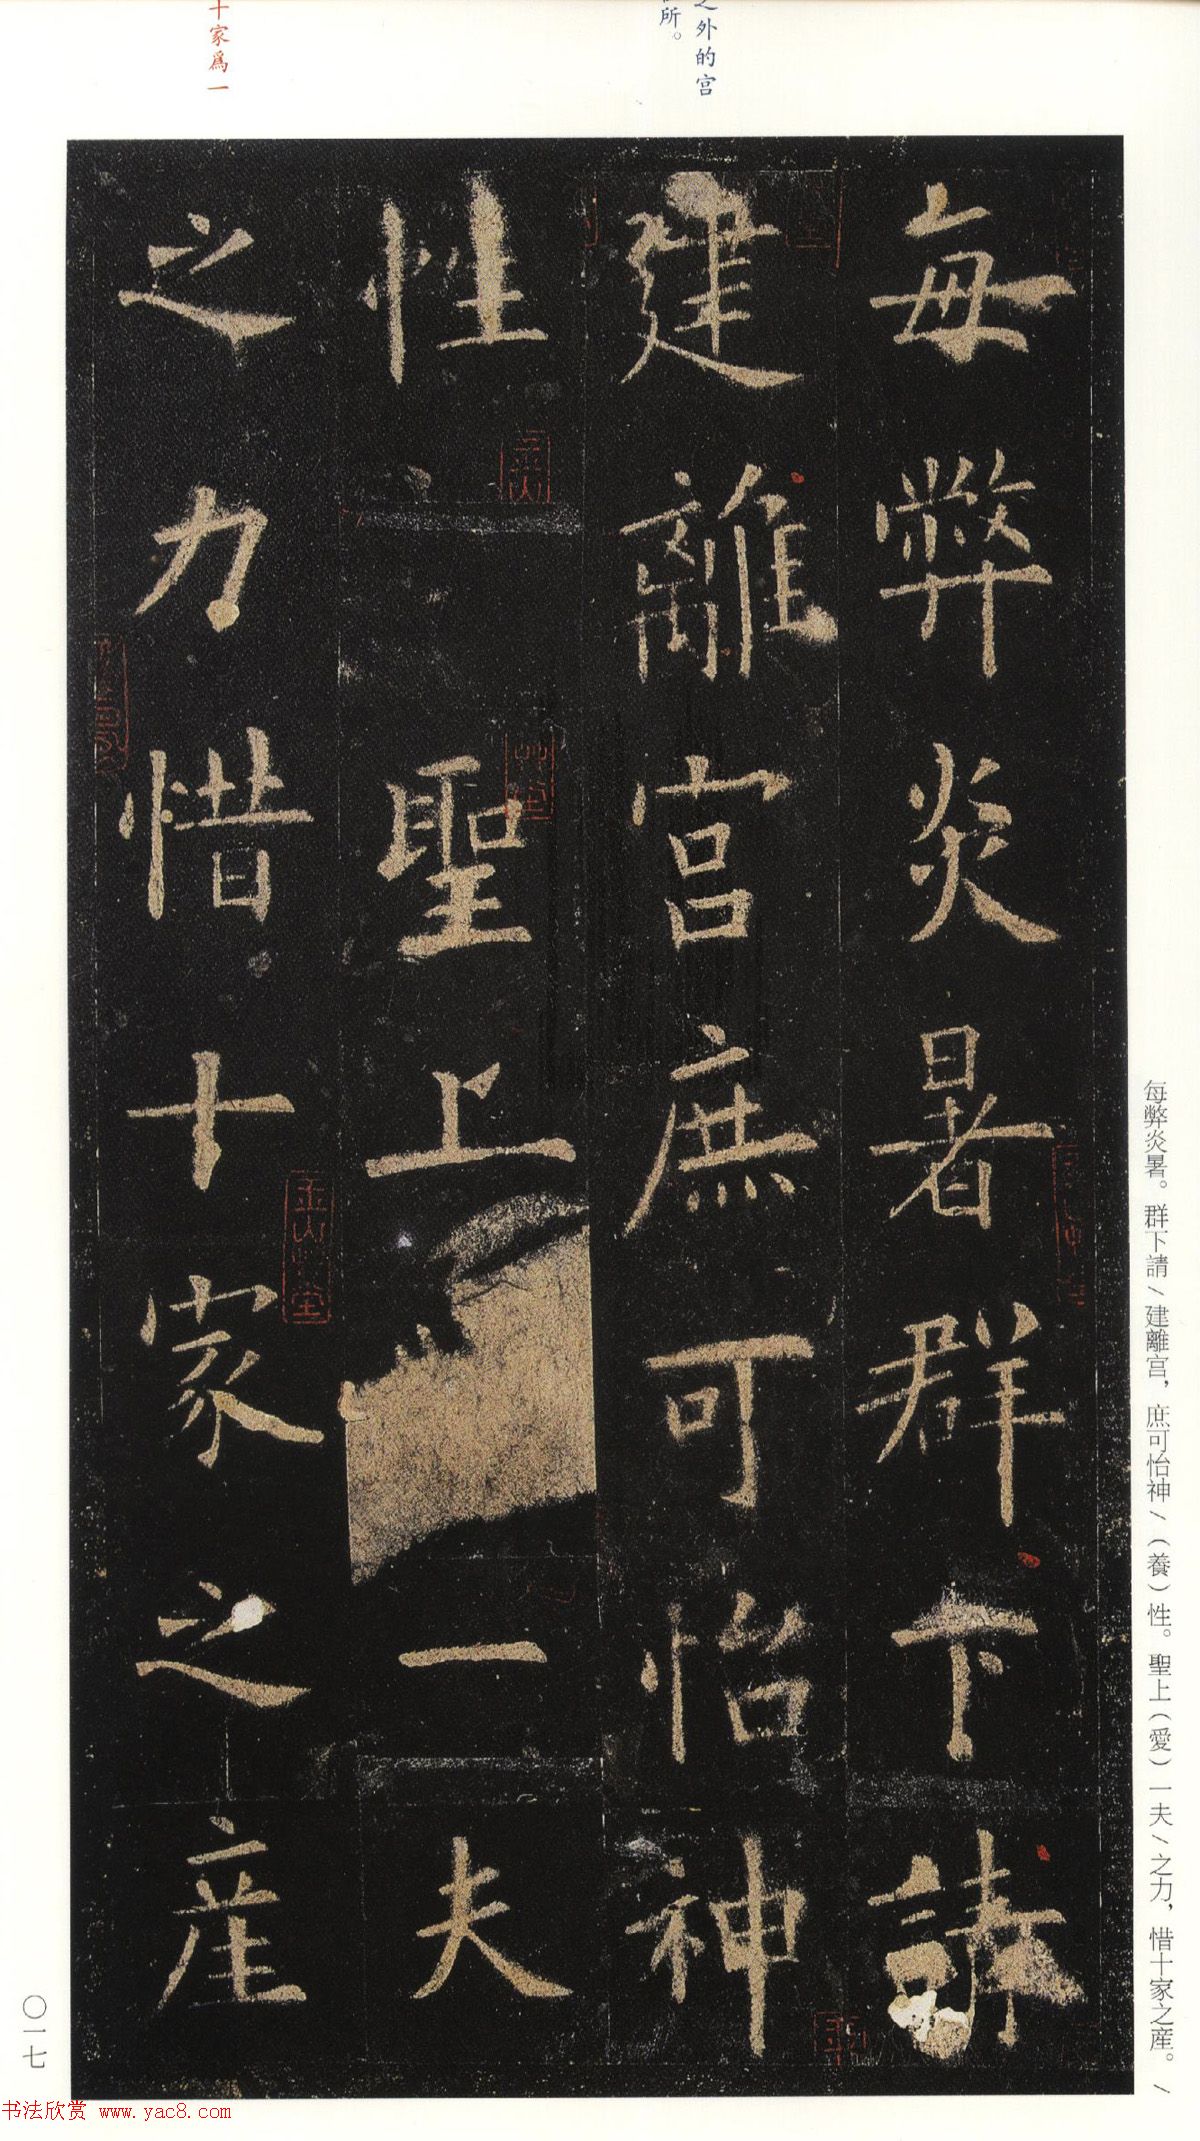 之外的宮
所。
十家爲一
每弊炎暑群下請
建離宫庶可怡神
性聖上一夫
之力惜十家之産
每弊炎暑。群下請/建離宫，庶可怡神/（養）性。聖上（愛）一夫/之力，惜十家之産。/
〇一七
书法欣赏 www.yac8.com